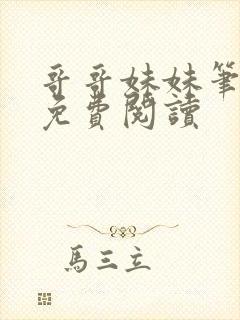 哥哥妹妹筆
免費閱讀
馬三立